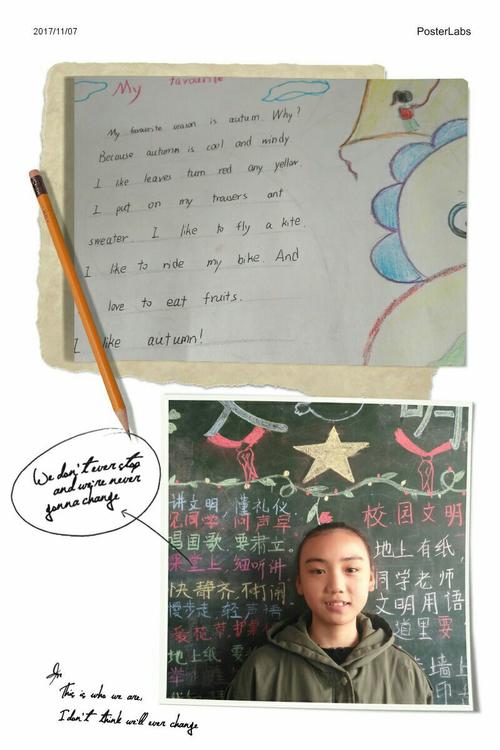 2017/11/07
PosterLabs
My favourite
My favourite season is autum. Why?
Because autumn is cool and windy.
I like leaves turn red any yellow.
I put on my trousers ant
sweater. I like to fly a kite.
I like to ride my bike. And
love to eat fruits.
I like autumn!
We don't ever stop
and we're never
gonna change
文明
讲文明 懂礼仪
见同学 问声早
唱国歌 要肃立。
课堂上 细听讲
快静齐 不打闹
慢步走 轻声语
爱花草
地上纸 要
校园文明
地上有纸
同学老师
文明用语
道里要
墙上
印
This is who we are,
I don't think we'll ever change